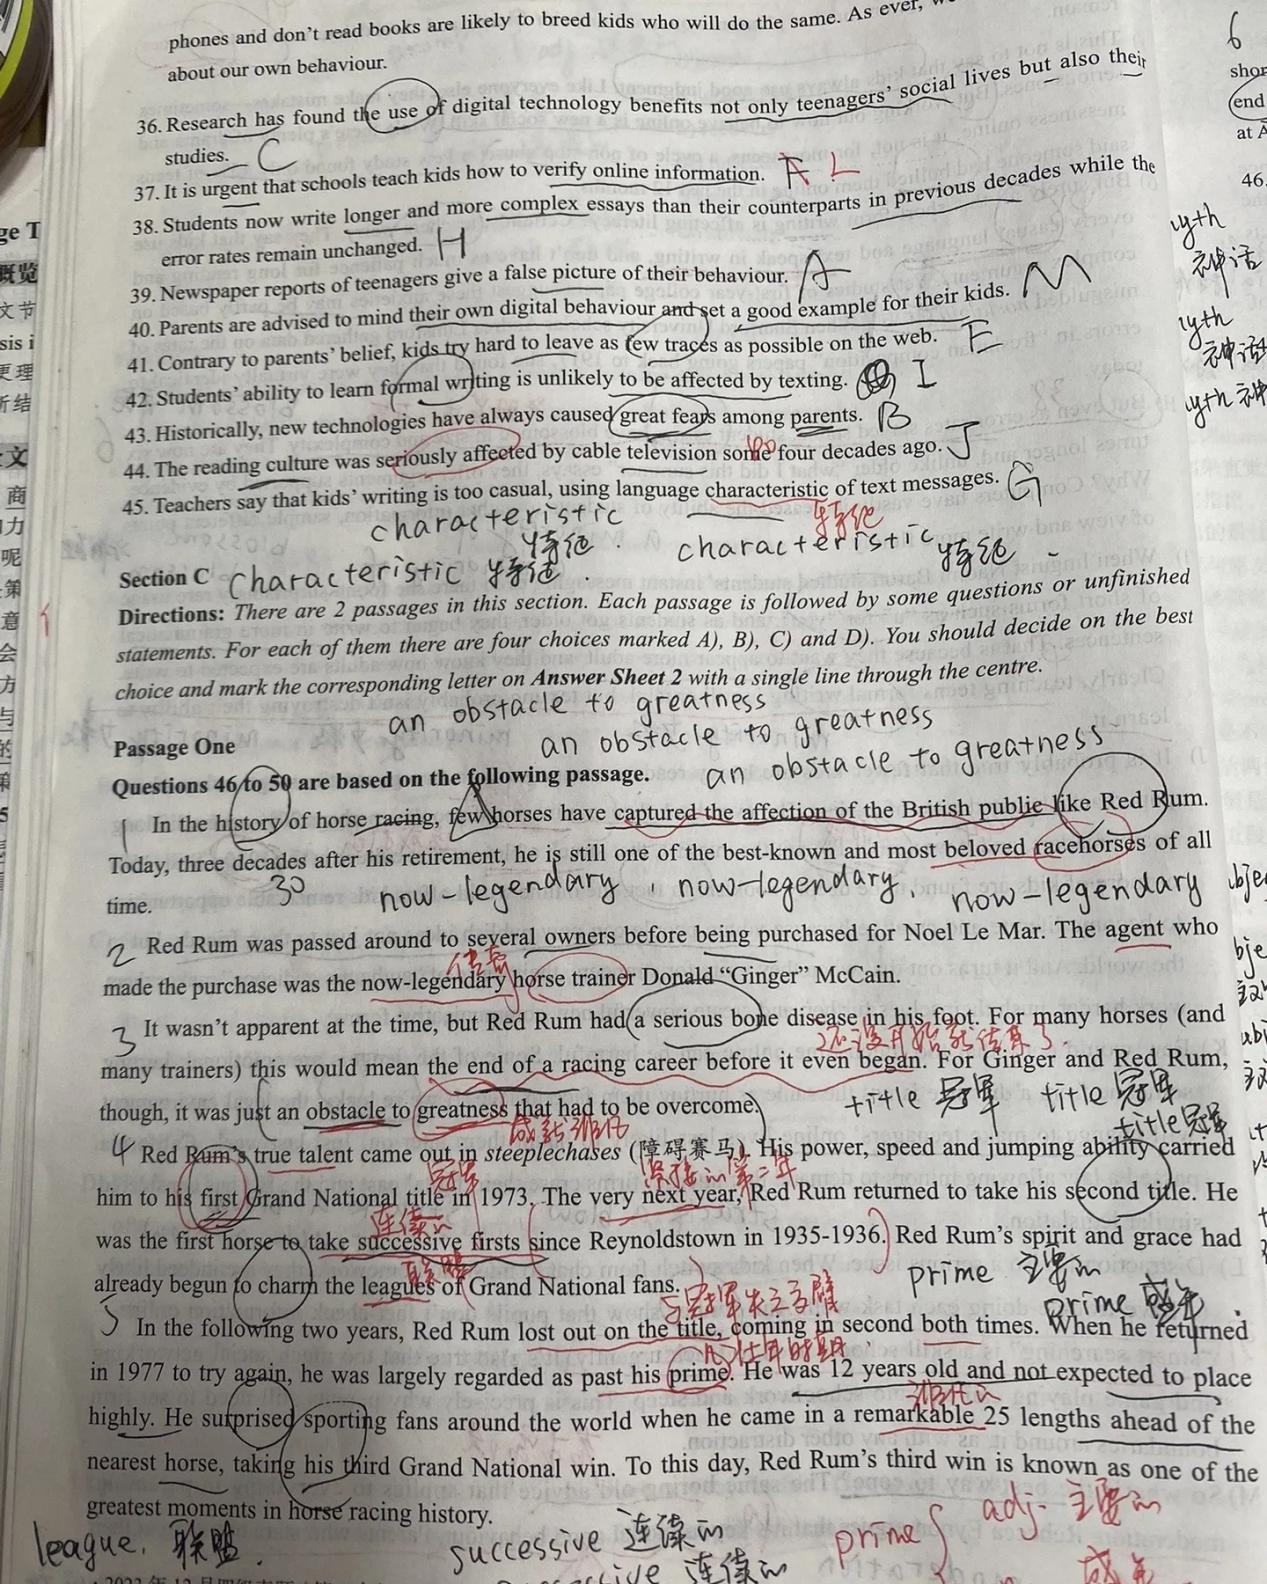 phones and don't read books are likely to breed kids who will do the same. As ever,
about our own behaviour.
36. Research has found the use of digital technology benefits not only teenagers' social lives but also their
studies. C
37. It is urgent that schools teach kids how to verify online information. F L
38. Students now write longer and more complex essays than their counterparts in previous decades while the
error rates remain unchanged. H
39. Newspaper reports of teenagers give a false picture of their behaviour. A
40. Parents are advised to mind their own digital behaviour and set a good example for their kids. M
41. Contrary to parents' belief, kids try hard to leave as few traces as possible on the web. E
42. Students' ability to learn formal writing is unlikely to be affected by texting. I
43. Historically, new technologies have always caused great fears among parents. B
44. The reading culture was seriously affected by cable television some four decades ago. J
45. Teachers say that kids' writing is too casual, using language characteristic of text messages. G
characteristic 特征
特征 characteristic 特征
Section C characteristic 特征
Directions: There are 2 passages in this section. Each passage is followed by some questions or unfinished
statements. For each of them there are four choices marked A), B), C) and D). You should decide on the best
choice and mark the corresponding letter on Answer Sheet 2 with a single line through the centre.
an obstacle to greatness
an obstacle to greatness
Passage One
an obstacle to greatness
Questions 46 to 50 are based on the following passage.
1 In the history of horse racing, few horses have captured the affection of the British public like Red Rum.
Today, three decades after his retirement, he is still one of the best-known and most beloved racehorses of all
30
time.
now-legendary, now-legendary, now-legendary
2 Red Rum was passed around to several owners before being purchased for Noel Le Mar. The agent who
传奇
made the purchase was the now-legendary horse trainer Donald "Ginger" McCain.
3 It wasn't apparent at the time, but Red Rum had a serious bone disease in his foot. For many horses (and
还没开始就结束了
many trainers) this would mean the end of a racing career before it even began. For Ginger and Red Rum,
though, it was just an obstacle to greatness that had to be overcome.
title 冠军 title 冠军
title 冠军
成就
4 Red Rum's true talent came out in steeplechases (障碍赛马). His power, speed and jumping ability carried
冠军
him to his first Grand National title in 1973. The very next year, Red Rum returned to take his second title. He
连续的
was the first horse to take successive firsts since Reynoldstown in 1935-1936. Red Rum's spirit and grace had
联盟
already begun to charm the leagues of Grand National fans.
prime 主要的
prime 盛年
与冠军失之交臂
5 In the following two years, Red Rum lost out on the title, coming in second both times. When he returned
壮年时期
in 1977 to try again, he was largely regarded as past his prime. He was 12 years old and not expected to place
highly. He surprised sporting fans around the world when he came in a remarkable 25 lengths ahead of the
nearest horse, taking his third Grand National win. To this day, Red Rum's third win is known as one of the
greatest moments in horse racing history.
league. 联盟.
successive 连续的
连续的
prime { adj. 主要的
盛年
yth
神话
yth
神话
yth 神
6
shor
end
at A
46.